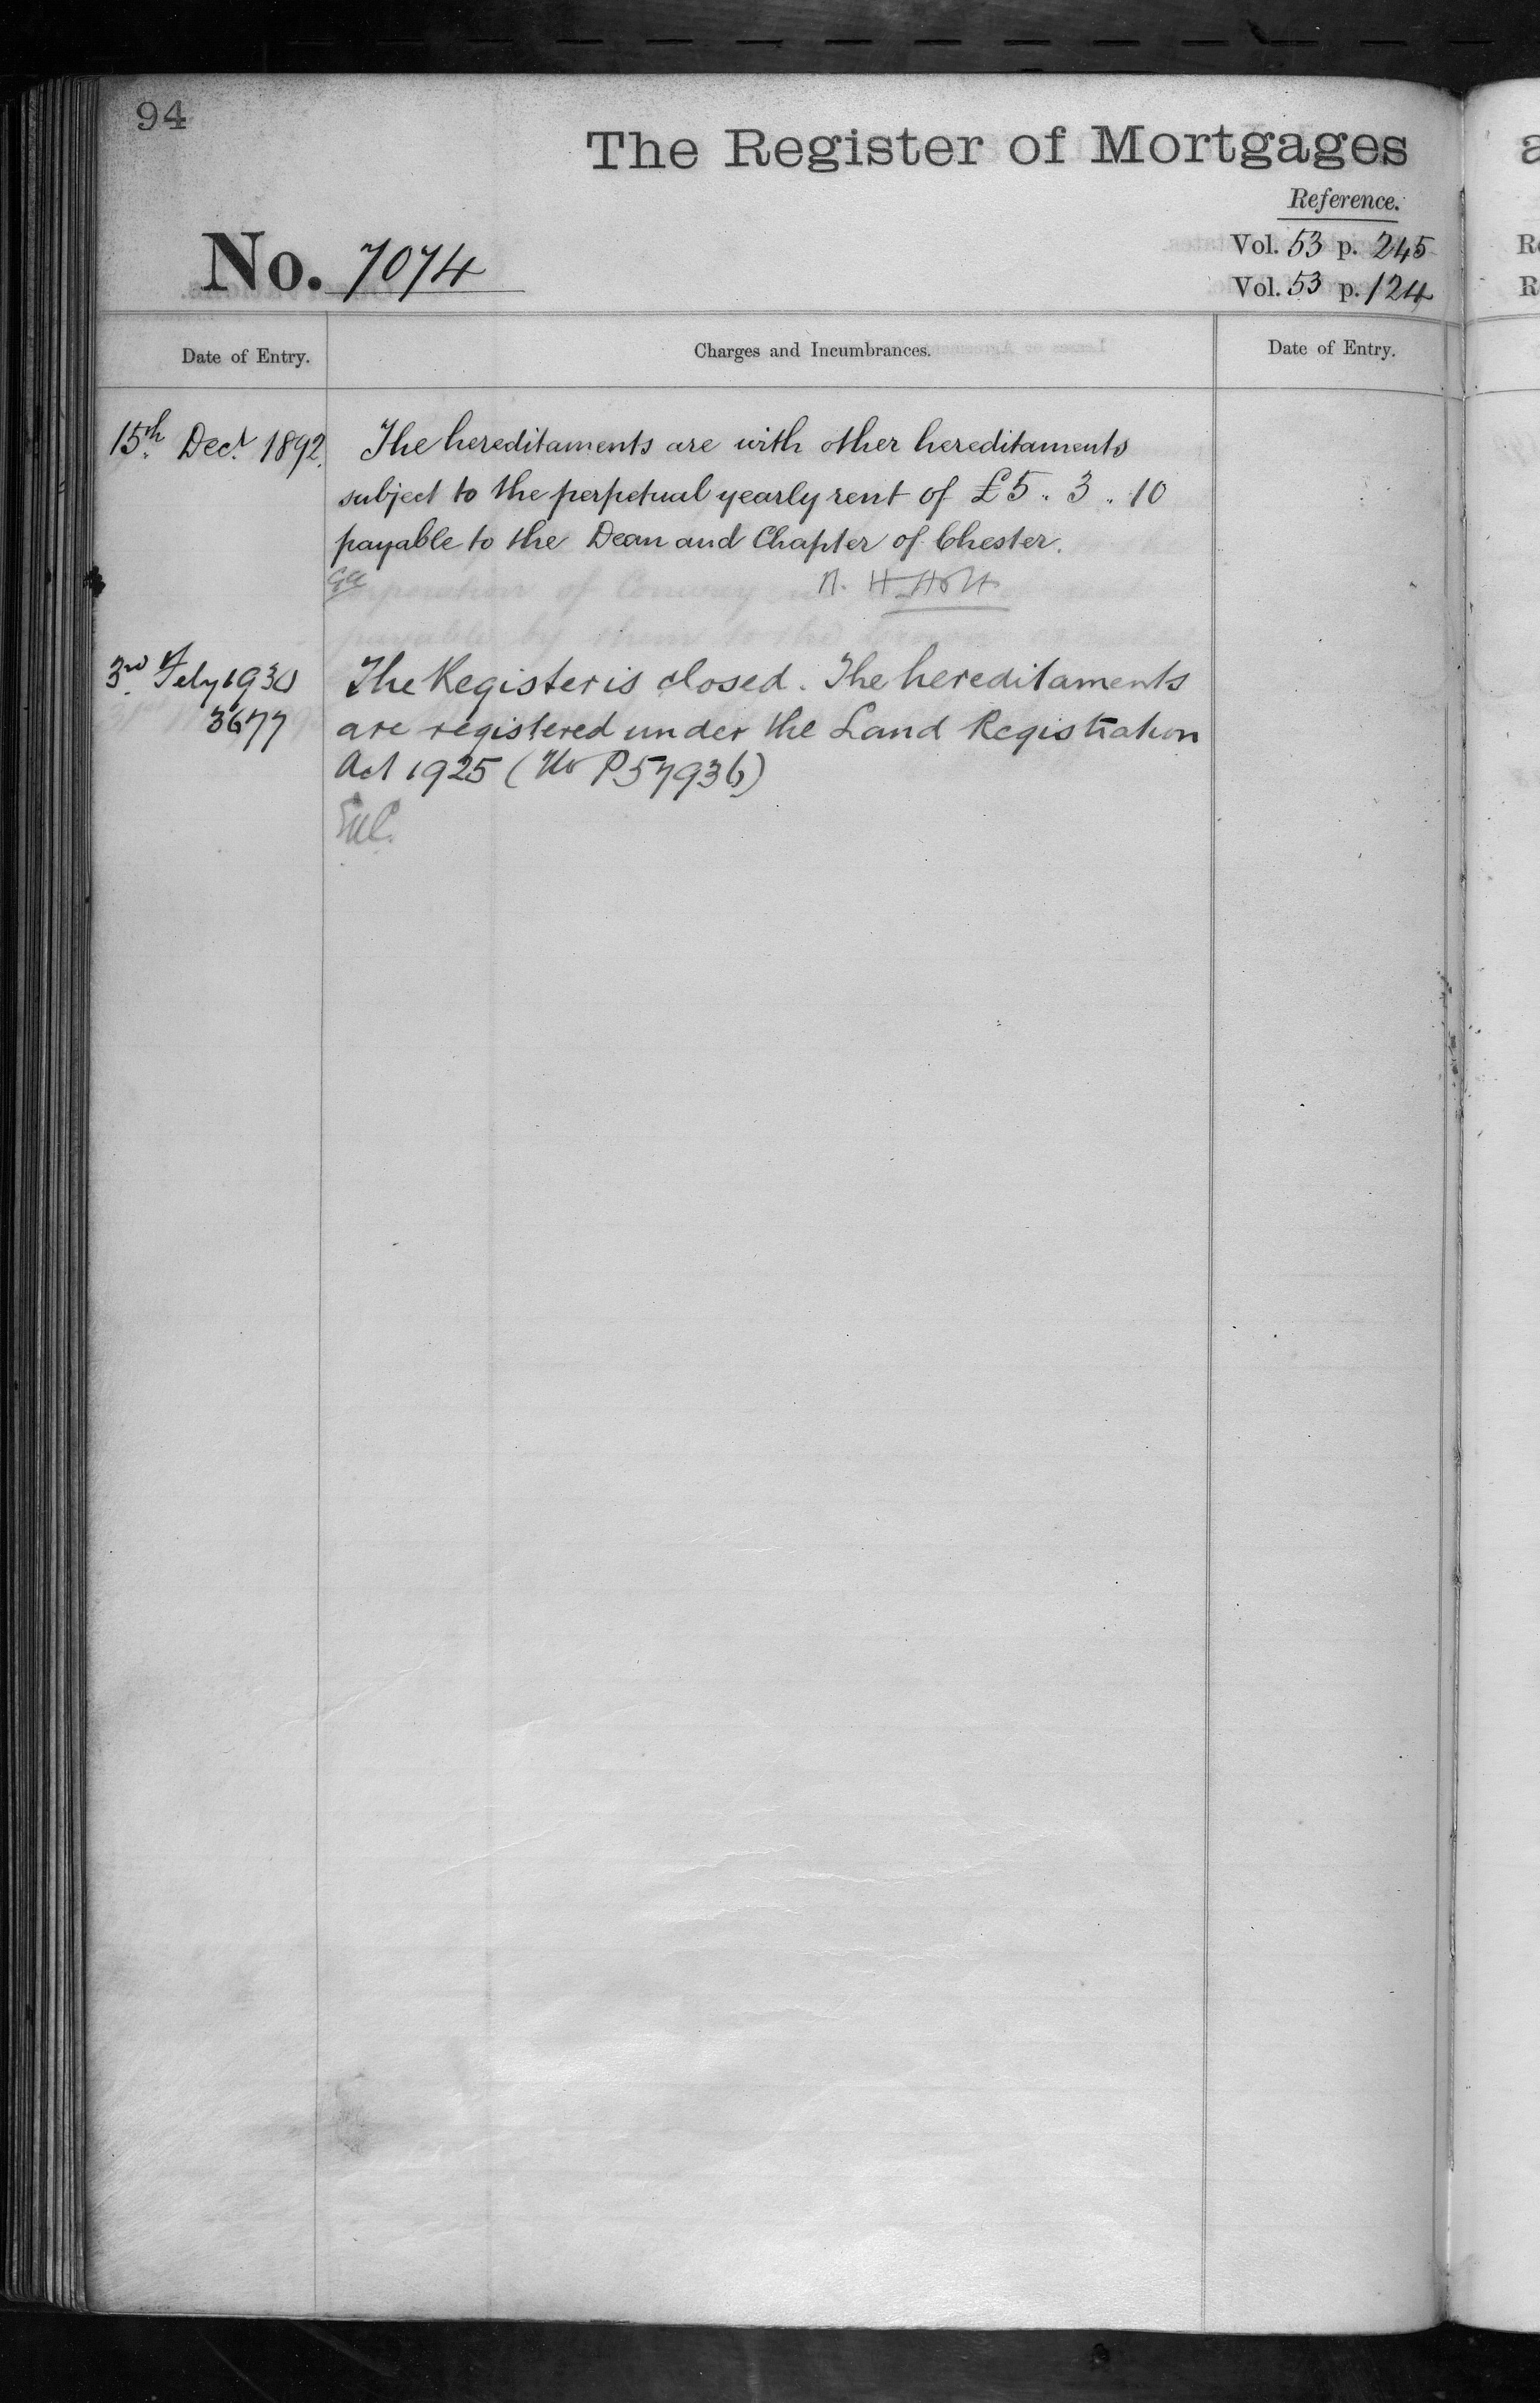 94
The Register of Mortgages
Reference.
No. 7074
Vol. 53 p. 245
Vol. 53 p. 124
Date of Entry.
Charges and Incumbrances.
Date of Entry.
15th Decr. 1892.
The hereditaments are with other hereditaments
subject to the perpetual yearly rent of £5 „ 3 „ 10
payable to the Dean and Chapter of Chester.
H. Holt
3rd Feby 1930
3677
The Register is closed. The hereditaments
are registered under the Land Registration
Act 1925 (No P.57936)